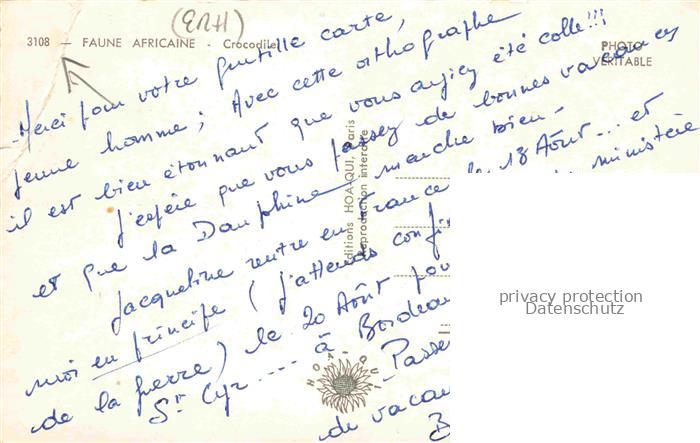 (ERH)
3108 — FAUNE AFRICAINE - Crocodile
PHOTO
VÉRITABLE
Merci pour votre gentille carte,
jeune homme ; Avec cette orthographe
il est bien étonnant que vous ayiez été collé !!!
J'espère que vous passez de bonnes vacances
et que la Dauphine marche bien -
Jacqueline rentre en France le 18 Août ... et
moi en principe (j'attends ministère
de la guerre) le 20 Août pour
St Cyr .... à Bordeaux
Passe
de vacan
B
Editions HOA-QUI, Paris
Reproduction interdite
HOA-QUI
privacy protection
Datenschutz